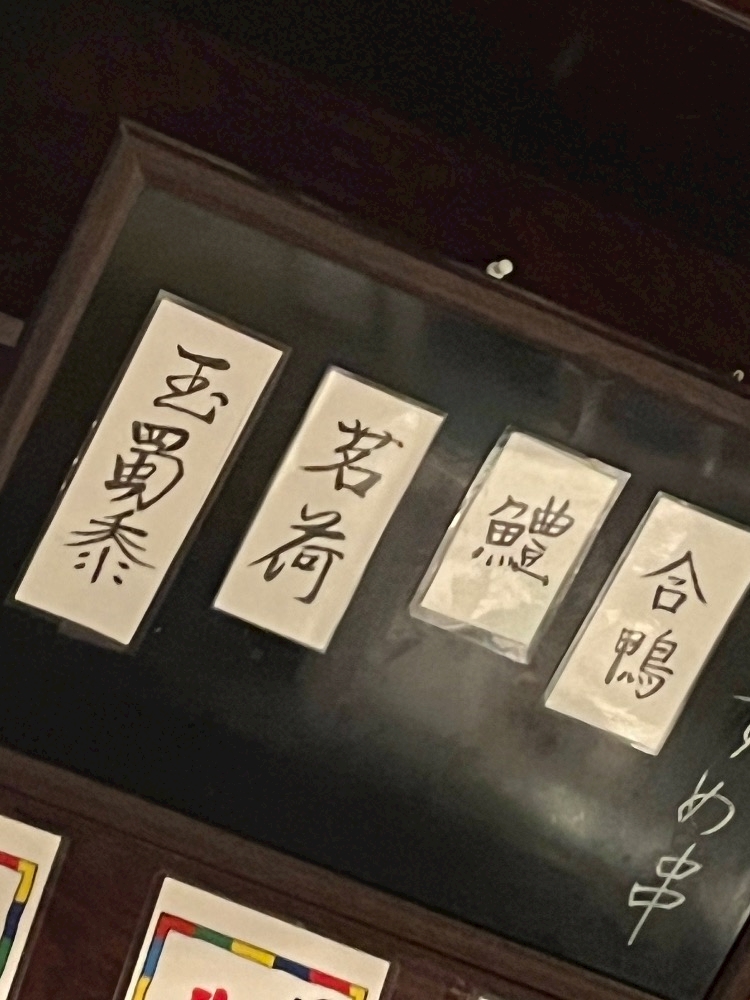 すめ串
合鴨
鱧
茗荷
玉蜀黍